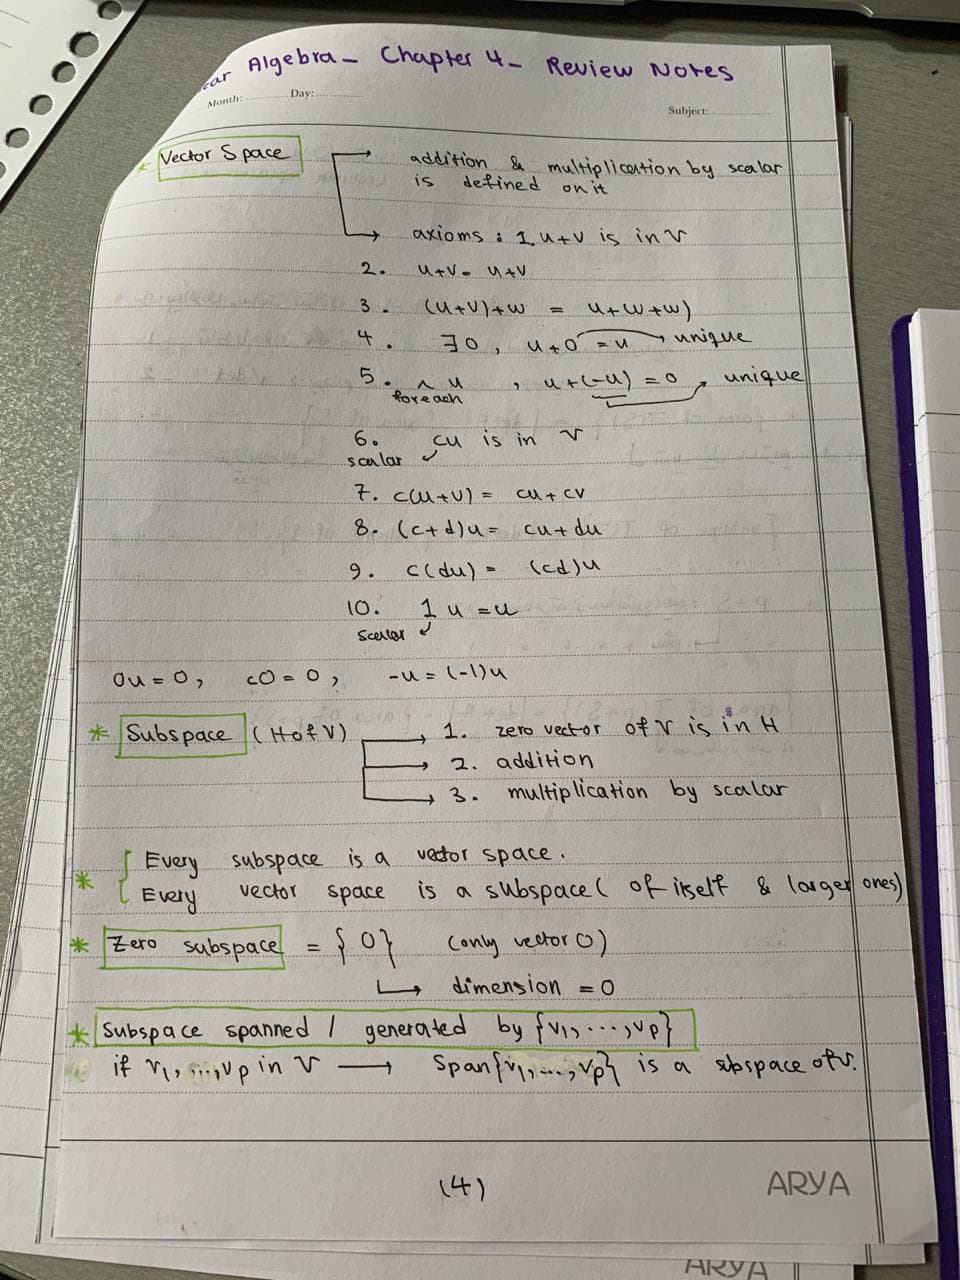 ear Algebra - Chapter 4 - Review Notes
Month: Day:
Subject:
* Vector Space
addition & multiplication by scalar
is defined on it
axioms : 1. u+v is in V
2. u+v = u+v
3. (u+v)+w = u+w+w)
4. ∃0, u+0 = u → unique
5. ∧ u , u+(-u) = 0 → unique
foreach
6. cu is in V
scalar
7. c(u+v) = cu+cv
8. (c+d)u = cu+du
9. c(du) = (cd)u
10. 1 u = u
scalar
0u = 0, c0 = 0, -u = (-1)u
* Subspace (H of V) → 1. zero vector of V is in H
→ 2. addition
→ 3. multiplication by scalar
* { Every subspace is a vector space.
Every vector space is a subspace ( of itself & larger ones)
* Zero subspace = {0} (only vector 0)
↳ dimension = 0
* Subspace spanned / generated by {v1, ..., vp}
if v1, ..., vp in V → Span{v1, ..., vp} is a sbspace of V.
(4)
ARYA
ARYA